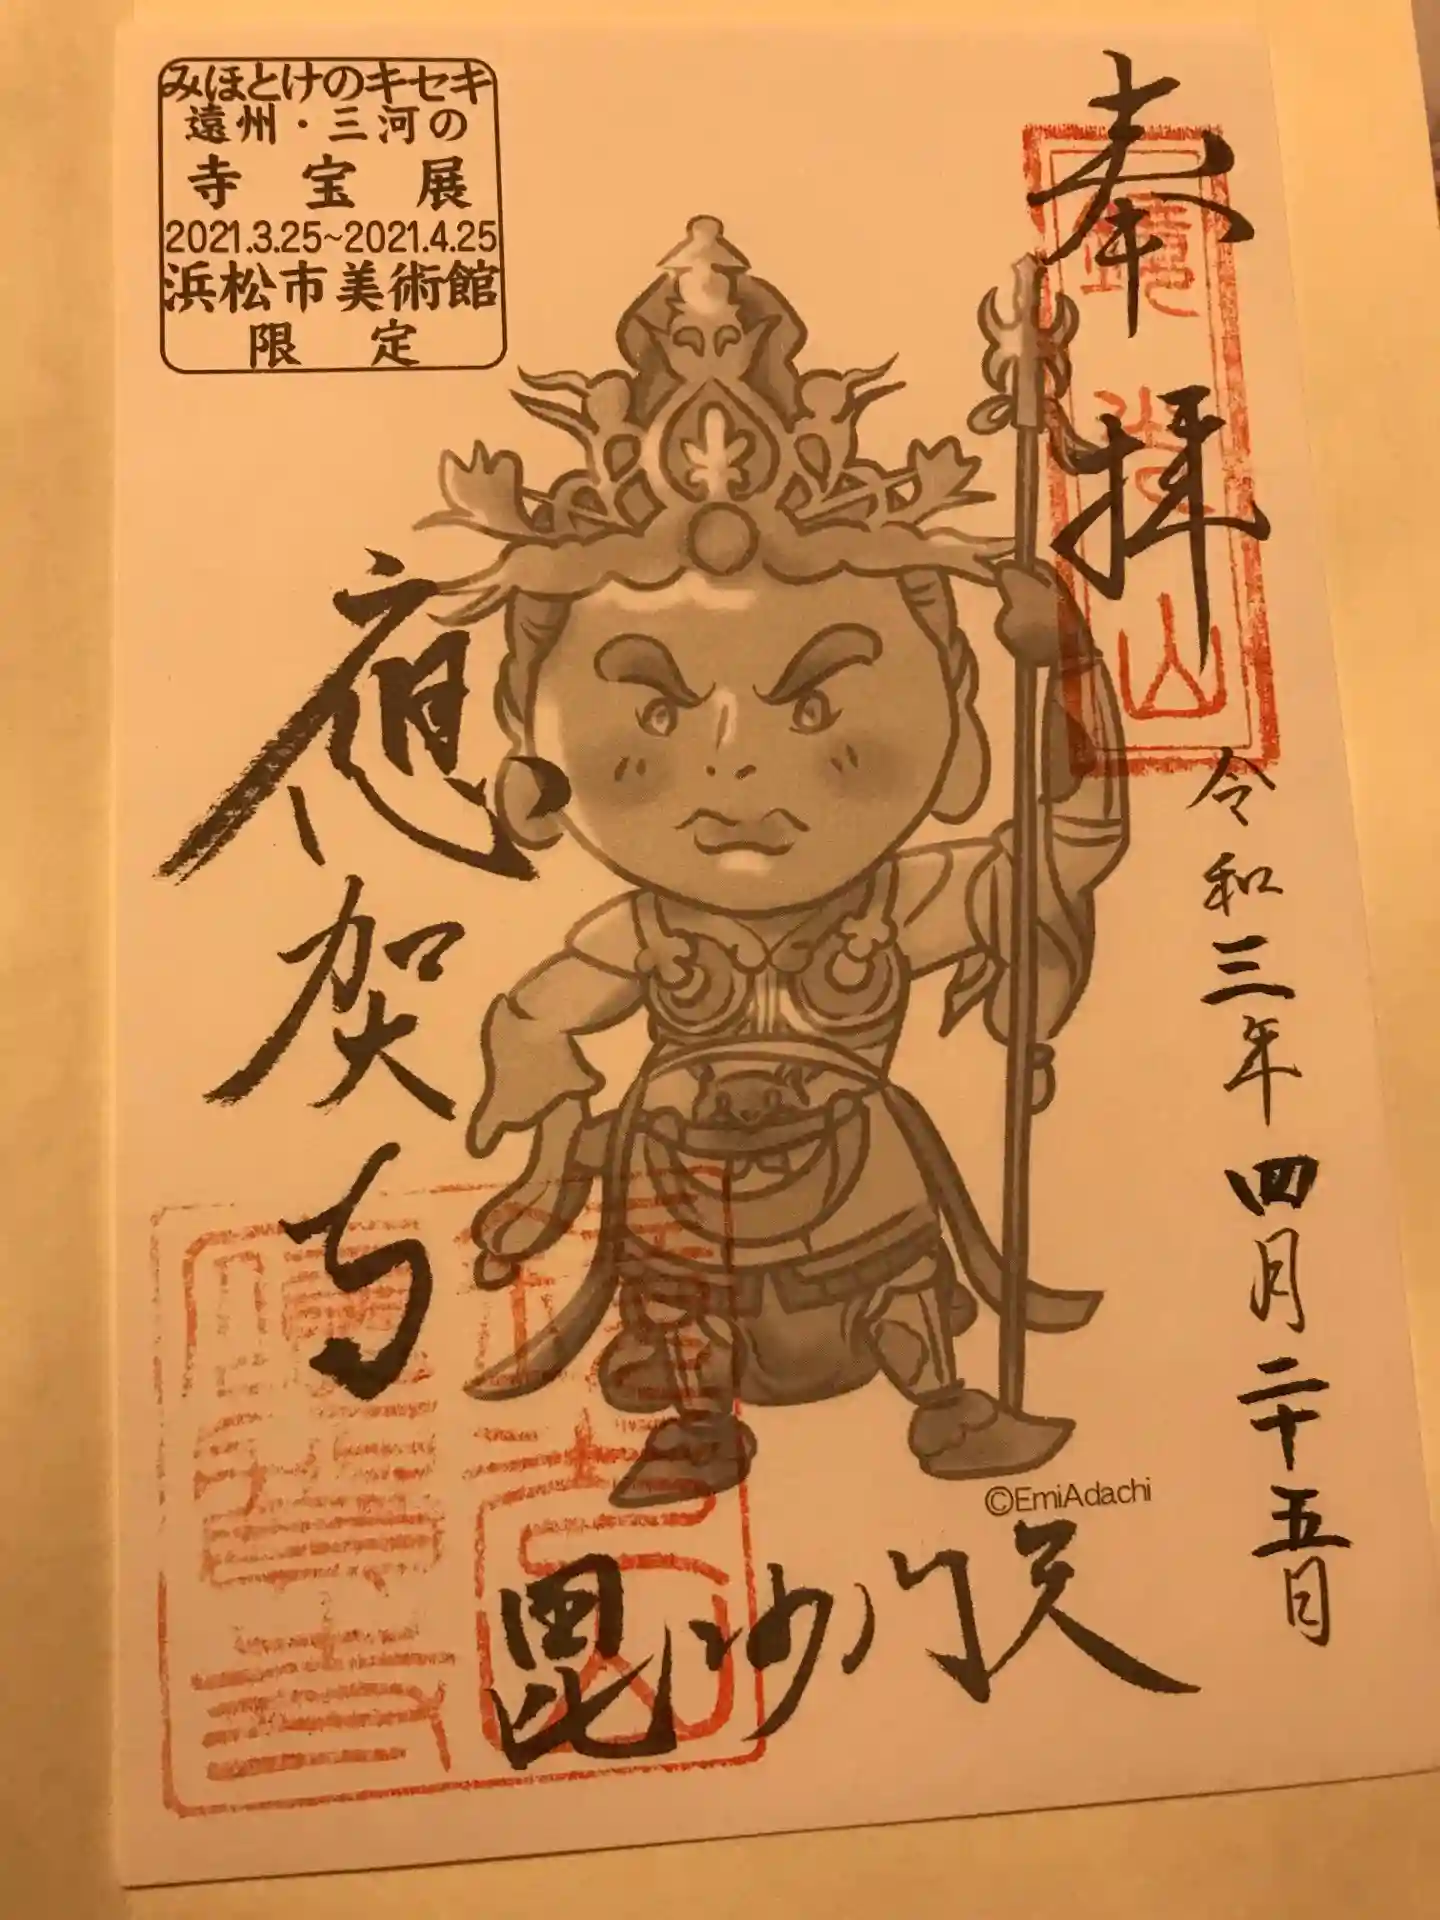 みほとけのキセキ
遠州・三河の
寺宝展
2021.3.25~2021.4.25
浜松市美術館
限定
奉拝
鏡光山
令和三年四月二十五日
應賀寺
毘沙門天
©EmiAdachi